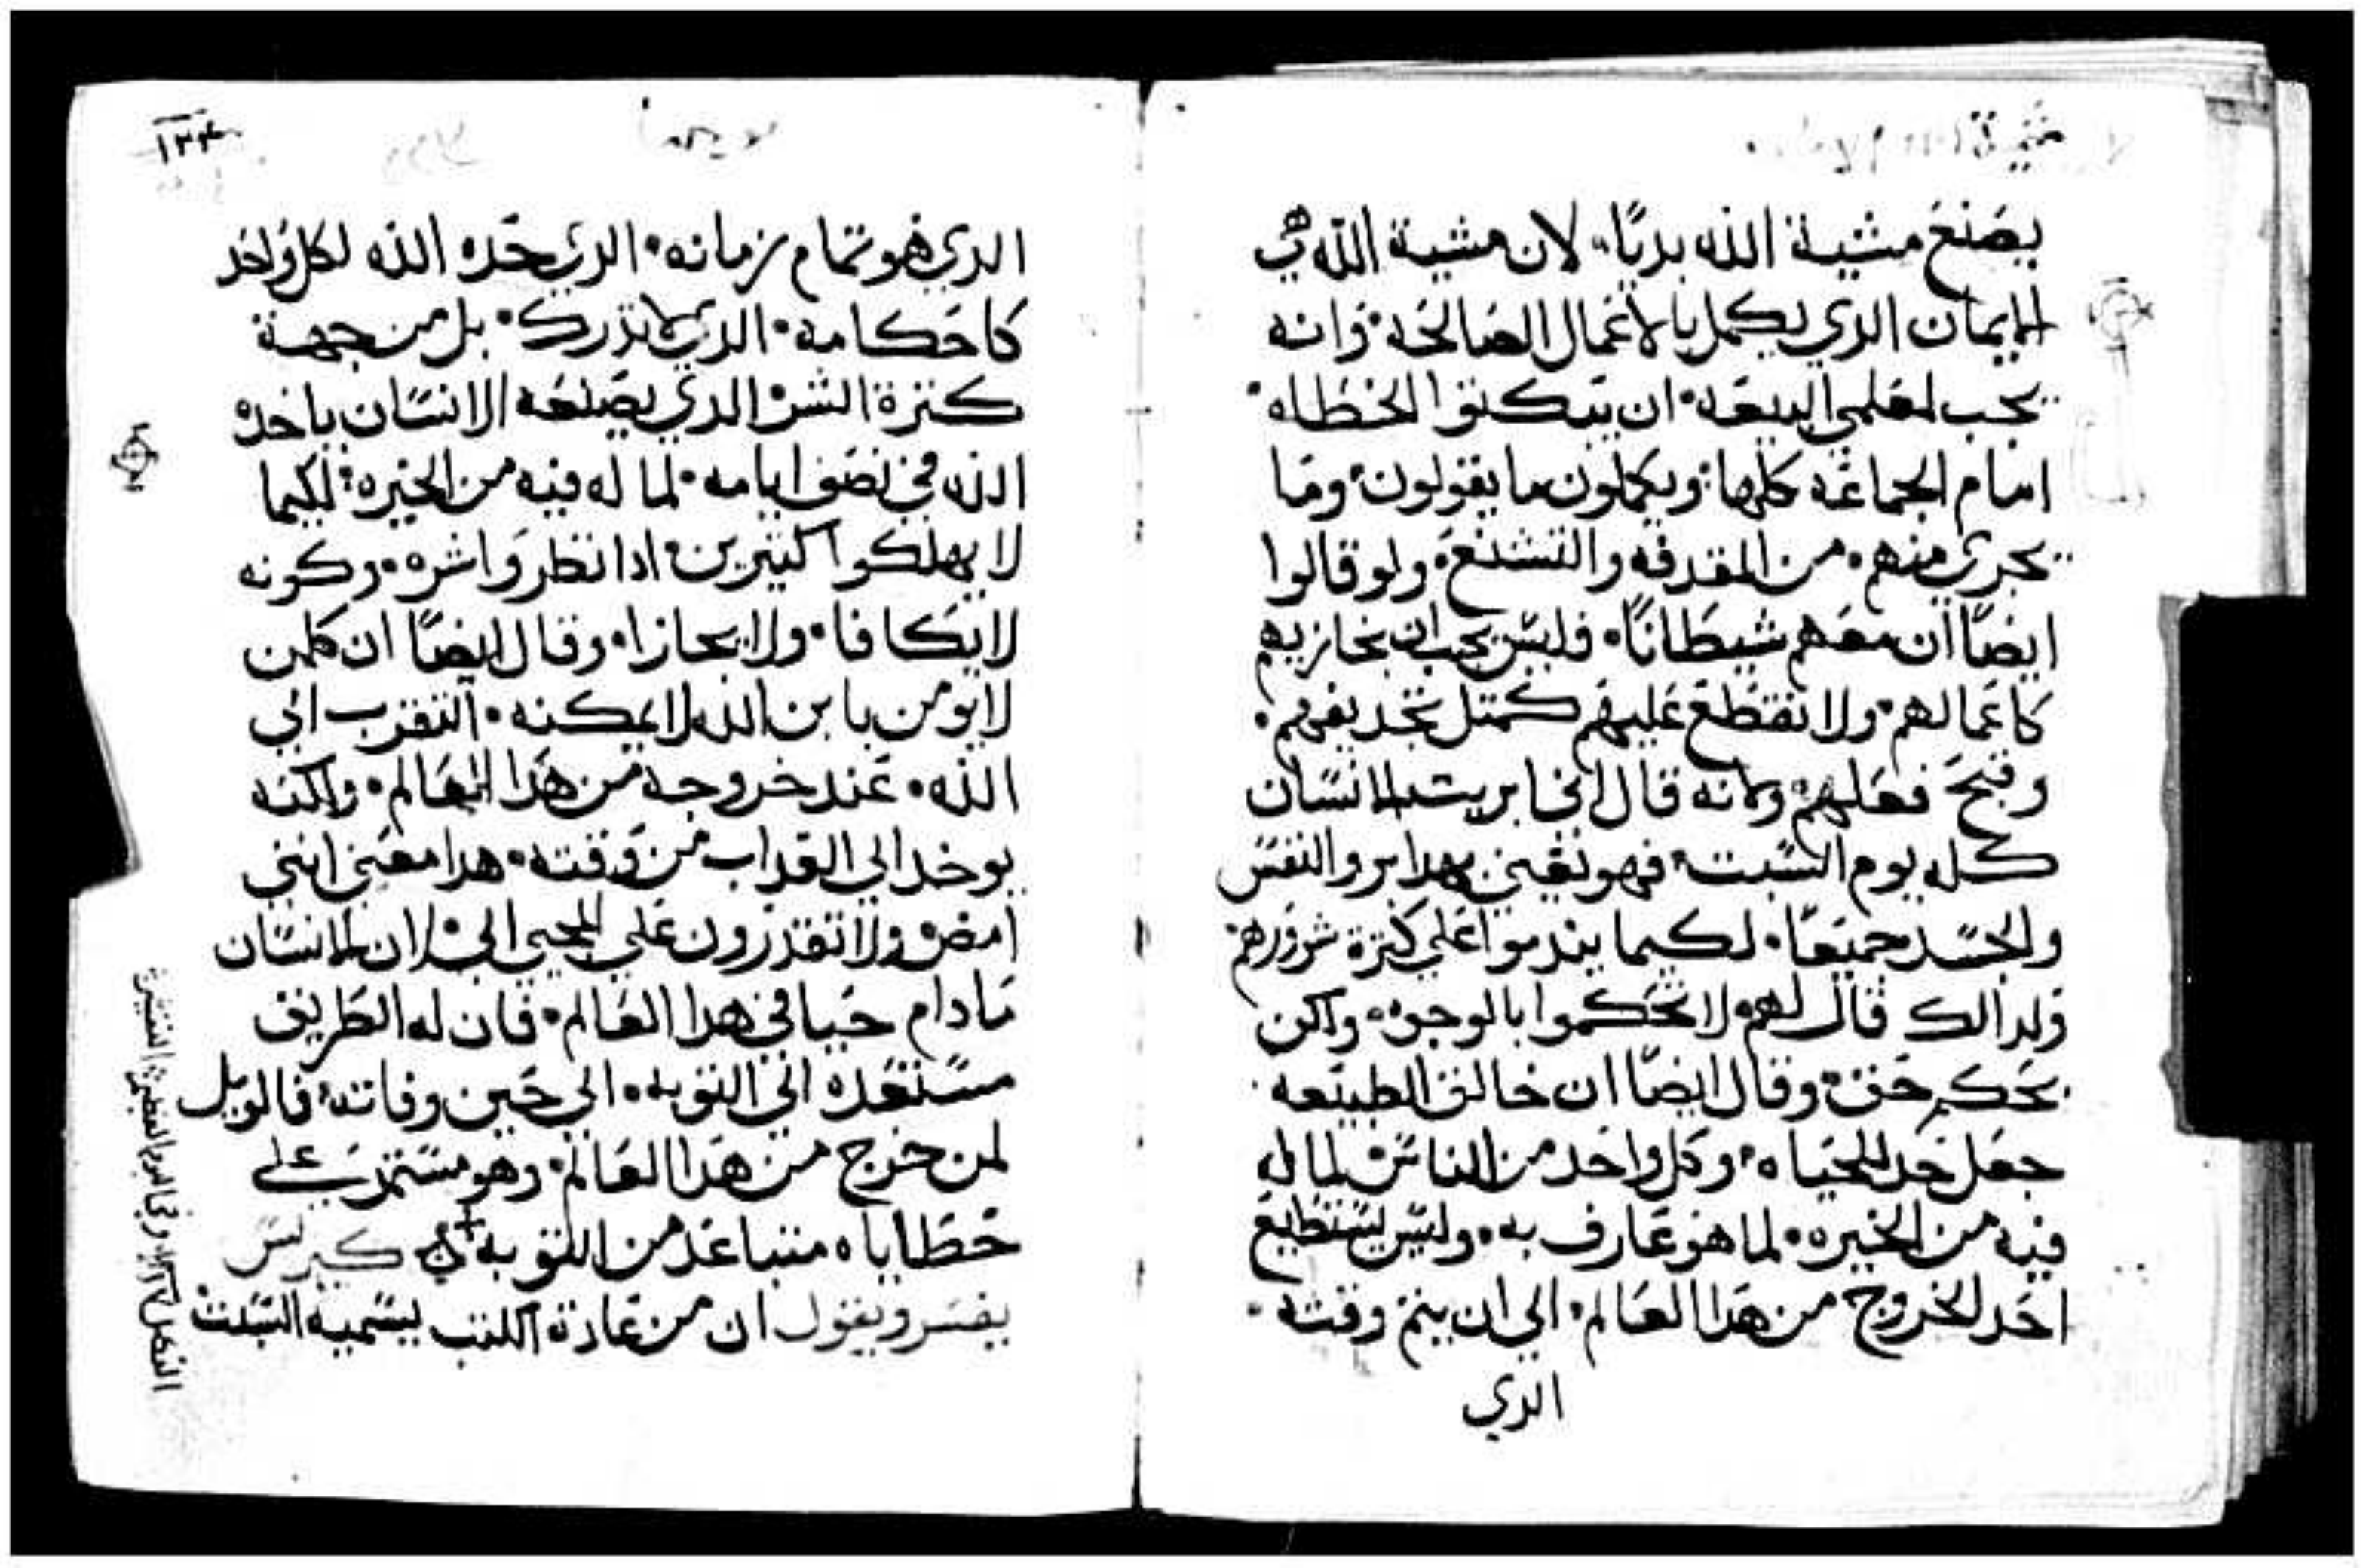 يصنع مشية الله بديًا لان مشية الله هي
الايمان الدي يكمل بالاعمال الصالحه وانه
يجب لمعلمي البيعه ان يبكتوا الخطاه
امام الجماعه كلها ويكملون ما يقولون وما
يجري منهم من المقدفه والتشنع ولو قالوا
ايضًا ان معهم شيطانًا فليس يجب ان نجازيهم
كاعمالهم ولا نقطع عليهم كمتل تجديفهم
وقبح فعلهم ولانه قال اني ابريت الانسان
كله يوم السبت فهو يعني بهدا بر والنفس
والجسد جميعًا لكيما يندموا علي كترة شرورهم
ولدالك قال لهم لا تحكموا بالوجوه ولكن
بحكم حق وقال ايضًا ان خالق الطبيعه
جعل حد للحياه وكل واحد من الناس لما له
فيه من الخيره لما هو عارف به وليس يستطيع
احد الخروج من هدا العالم الي ان يتم وقته
الدي
١٣٤
الدي هو تمام زمانه الدي حده الله لكل واحد
كاحكامه الدي لا تدرك بل من جهة
كترة الشر الدي يصنعه الانسان ياخده
الله في نصف ايامه لما له فيه من الخيره لكيما
لا يهلكوا كتيرين ادا نظروا شره وكونه
لا يكافا ولا يجازا وقال ايضًا ان كلمن
لا يومن بابن الله لا يمكنه التقرب الي
الله عند خروجه من هدا العالم ولكنه
يوخد الي العداب من وقته هدا معني انني
امضي ولا تقدرون علي المجي الي لان الانسان
ما دام حيا في هدا العالم فان له الطريق
مستعده الي التوبه الي حين وفاته فالويل
لمن خرج من هدا العالم وهو مستمر علي
خطاياه متباعد من التوبه كيرلس
يفسر ويقول ان من عادة الكتب ليسميه السبت